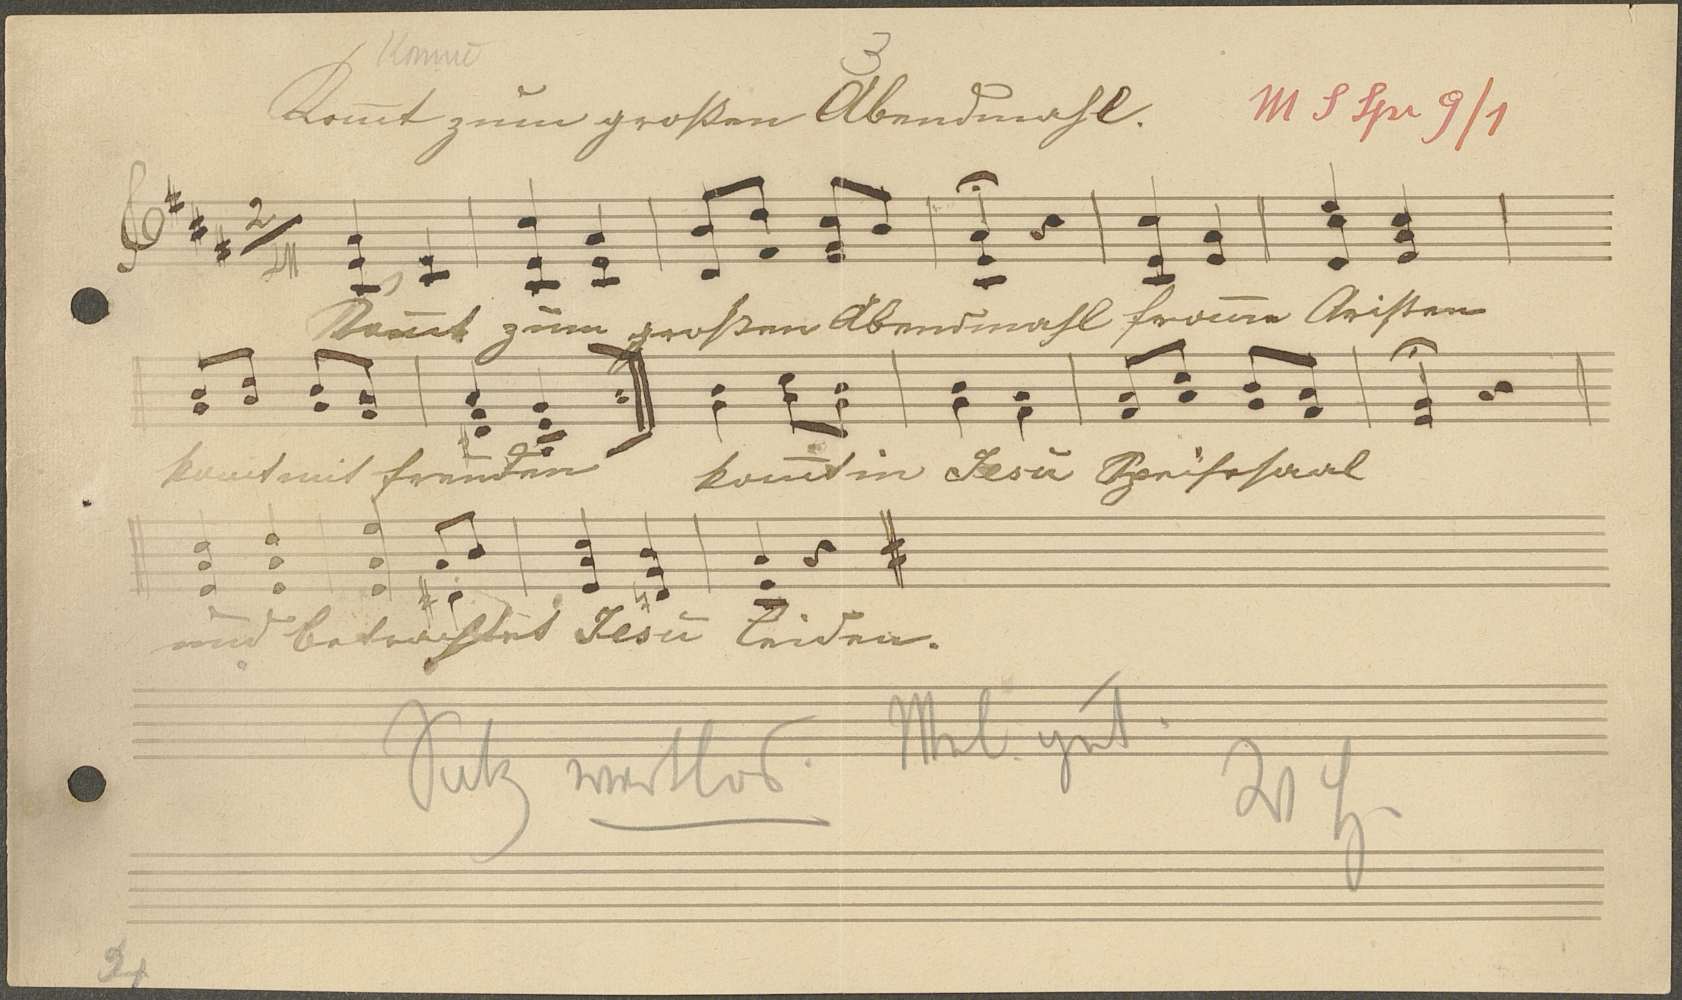 Komt
3
Kom̅t zum großen Abendmahl.
M S Spr 9/1
2/
Kom̅t zum großen Abendmahl from̅e Cristen
kom̅t mit freuden kom̅t in Jesu Speisesaal
und betrachtet Jesu Leiden.
Satz wertlos. Mel. gut.